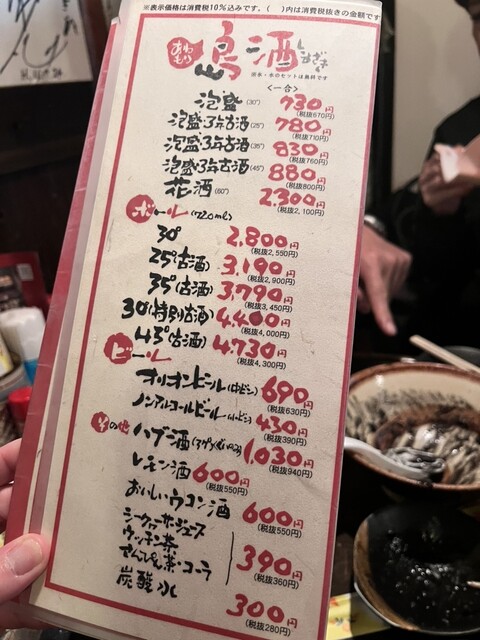 ※表示価格は消費税10%込みです。( )内は消費税抜きの金額です
あわもり 島酒 しまざき
※氷・水のセットは無料です
<一合>
泡盛(30°) 730円
(税抜670円)
泡盛3年古酒(25°) 780円
(税抜710円)
泡盛3年古酒(35°) 830円
(税抜760円)
泡盛3年古酒(45°) 880円
(税抜800円)
花酒(60°) 2.300円
(税抜2,100円)
ボトル(720ml)
30° 2.800円
(税抜2,550円)
25°(古酒) 3.190円
(税抜2,900円)
35°(古酒) 3.790円
(税抜3,450円)
30°(特別古酒) 4.400円
(税抜4,000円)
43°(古酒) 4.730円
(税抜4,300円)
ビール
オリオンビール(中ビン) 690円
(税抜630円)
ノンアルコールビール(小ビン) 430円
(税抜390円)
その他
ハブ酒 1.030円
(税抜940円)
レモン酒 600円
(税抜550円)
おいしいウコン酒 600円
(税抜550円)
シークヮーサージュース
グァバ茶
さんぴん茶・コーラ 390円
(税抜360円)
炭酸水 300円
(税抜280円)